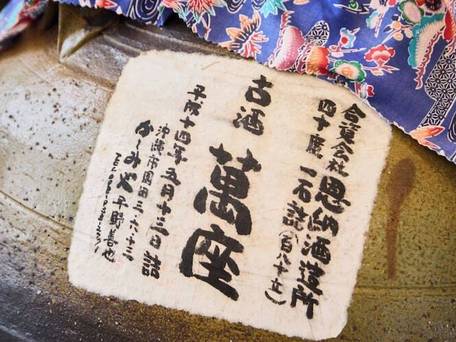 合資会社 恩納酒造所
四十度 一石詰(百八十立)
古酒 萬座
平成十四年五月十三日詰
沖縄市園田三-六-十三
かーみや 平野善也